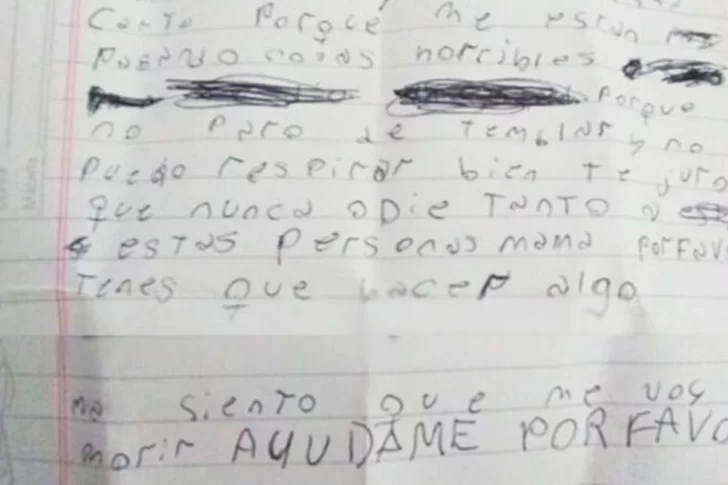 Carta Porque me estan
Pasando cosas horribles
Porque
no Paro de TemblAr y no
Puedo respirar bien Te juro
Que nunca oDie TanTo a
esTas Personas mama PorFav
Tenes Que hacer algo
me SienTo Que me voy
morir AYUDAME POR FAVO